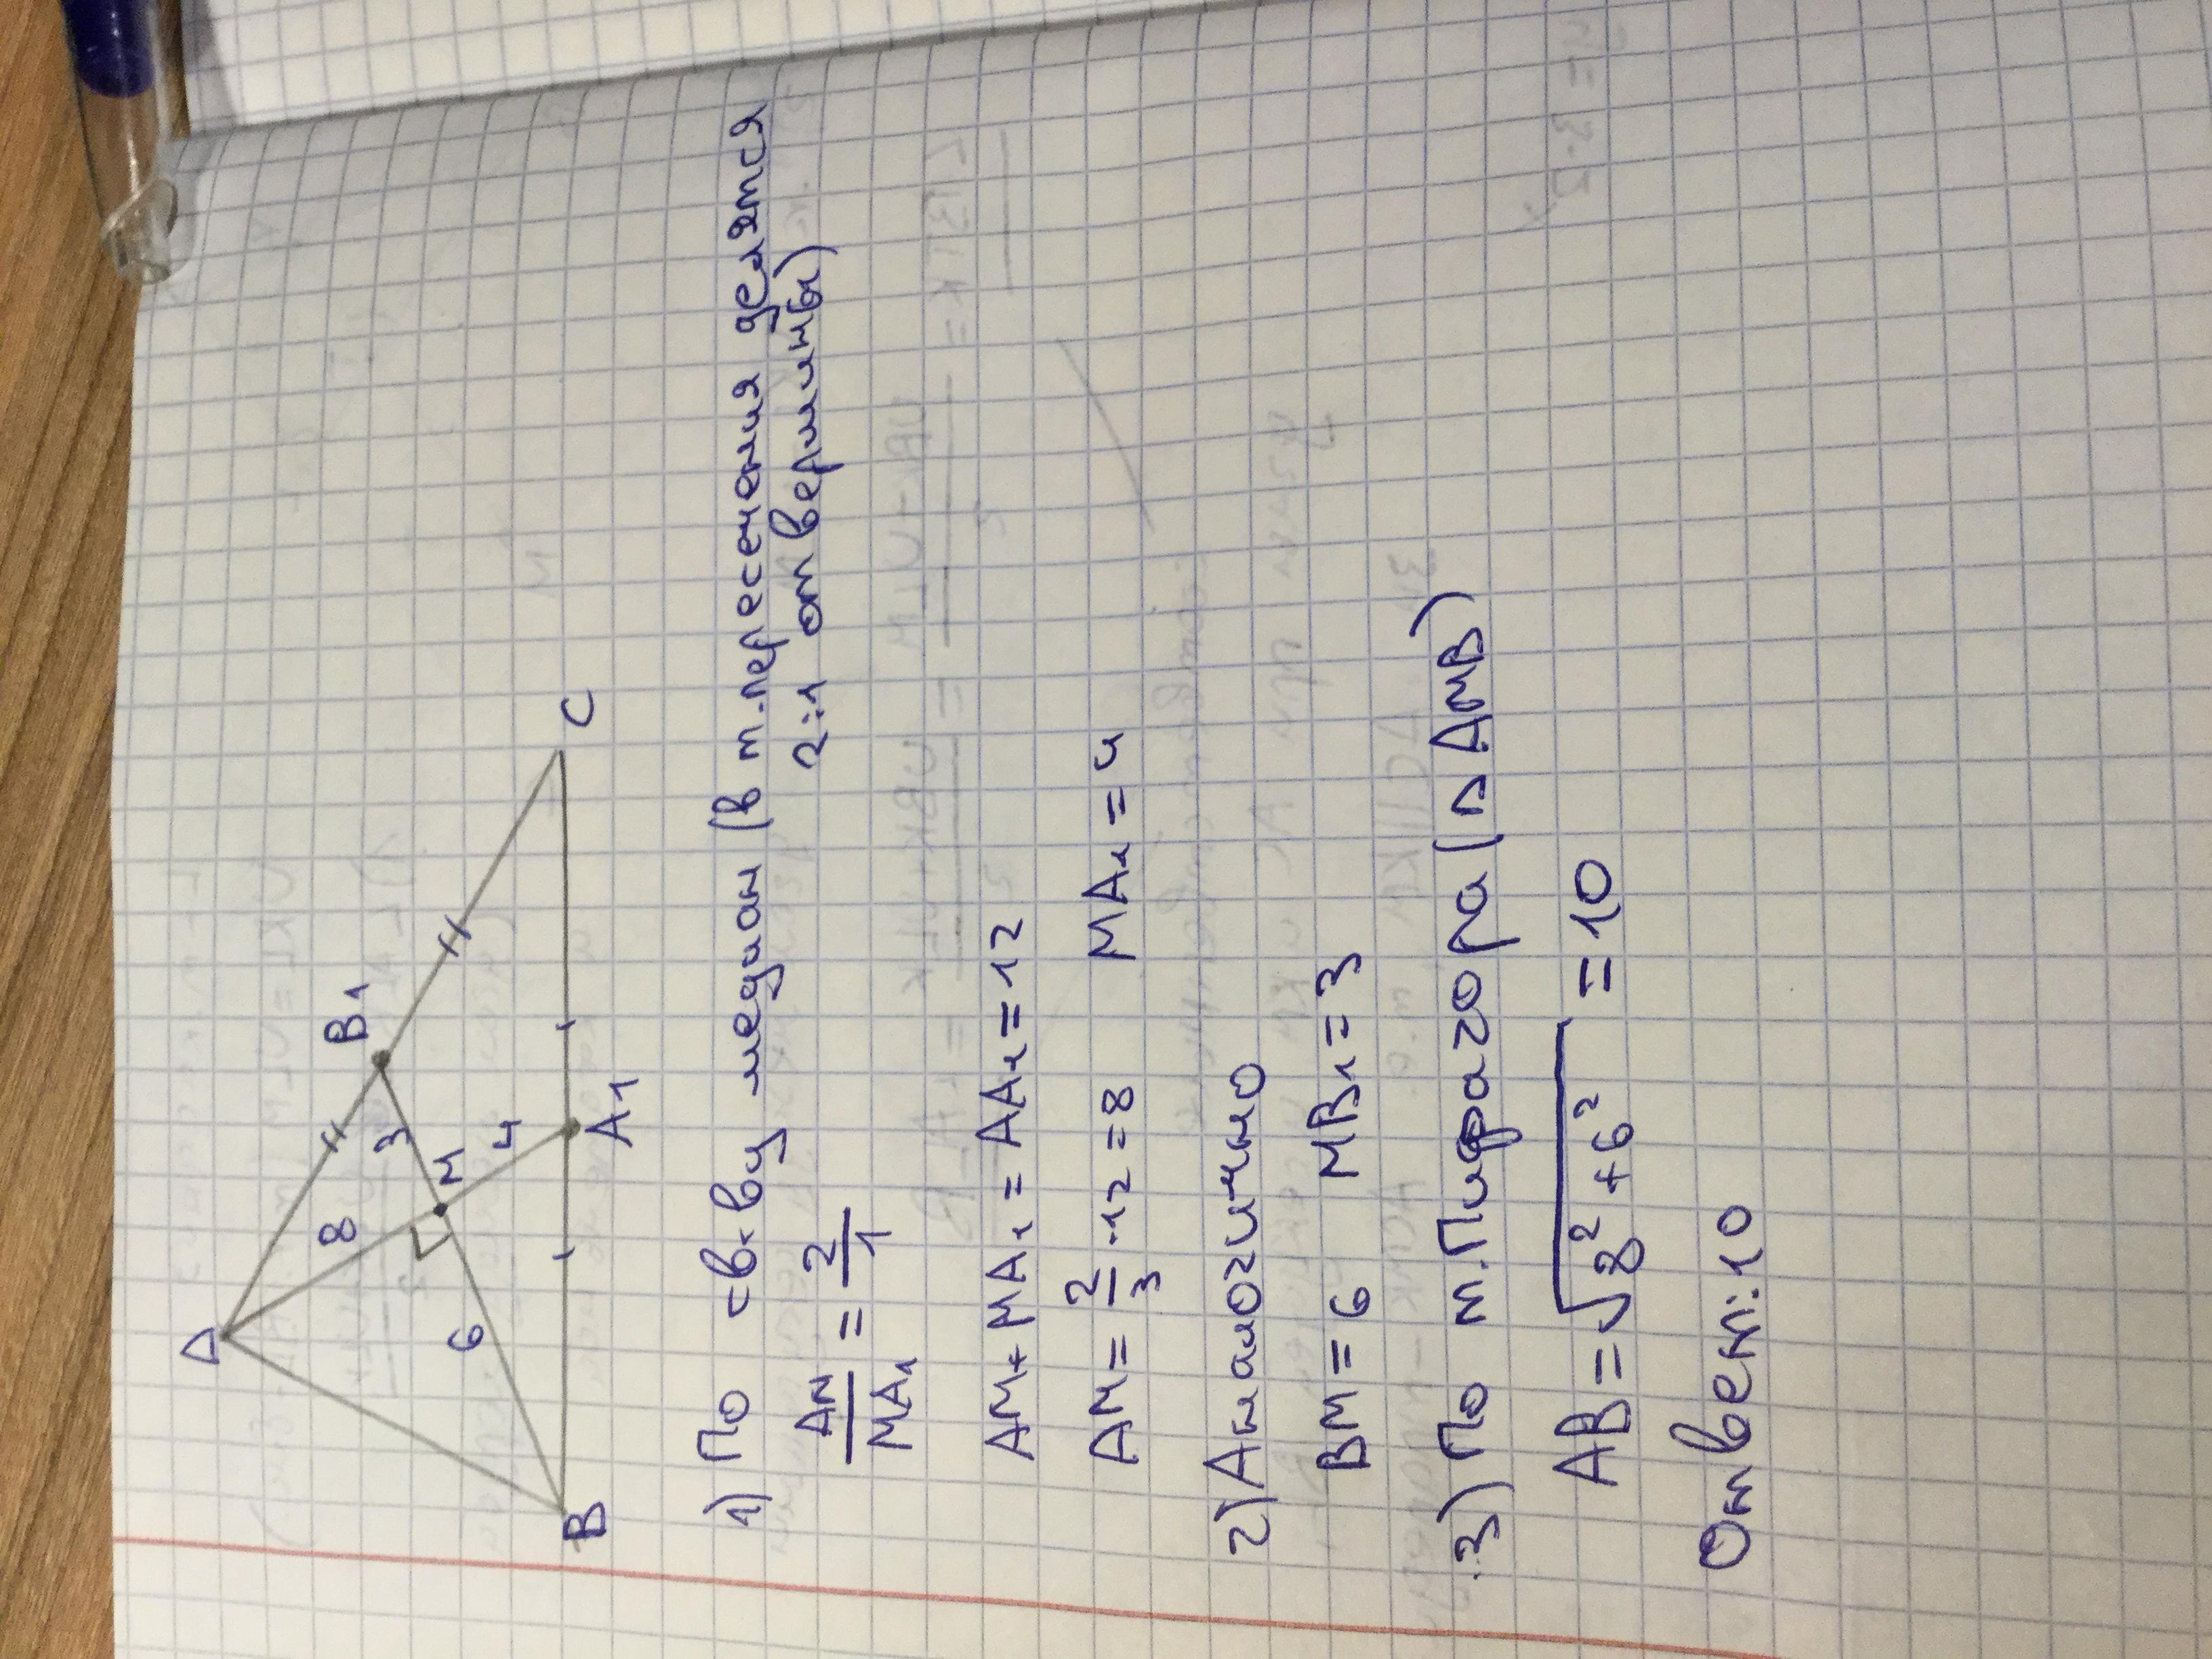 A
B1
8
3
M
6
4
B
A1
C
1) По св-ву медиан (в т.пересечения делятся
2:1 от вершины)
AM/MA₁ = 2/1
AM + MA₁ = AA₁ = 12
AM = 2/3 · 12 = 8 MA₁ = 4
2) Аналогично
BM = 6 MB₁ = 3
3) По т.Пифагора (△AMB)
AB = √8² + 6² = 10
Ответ: 10